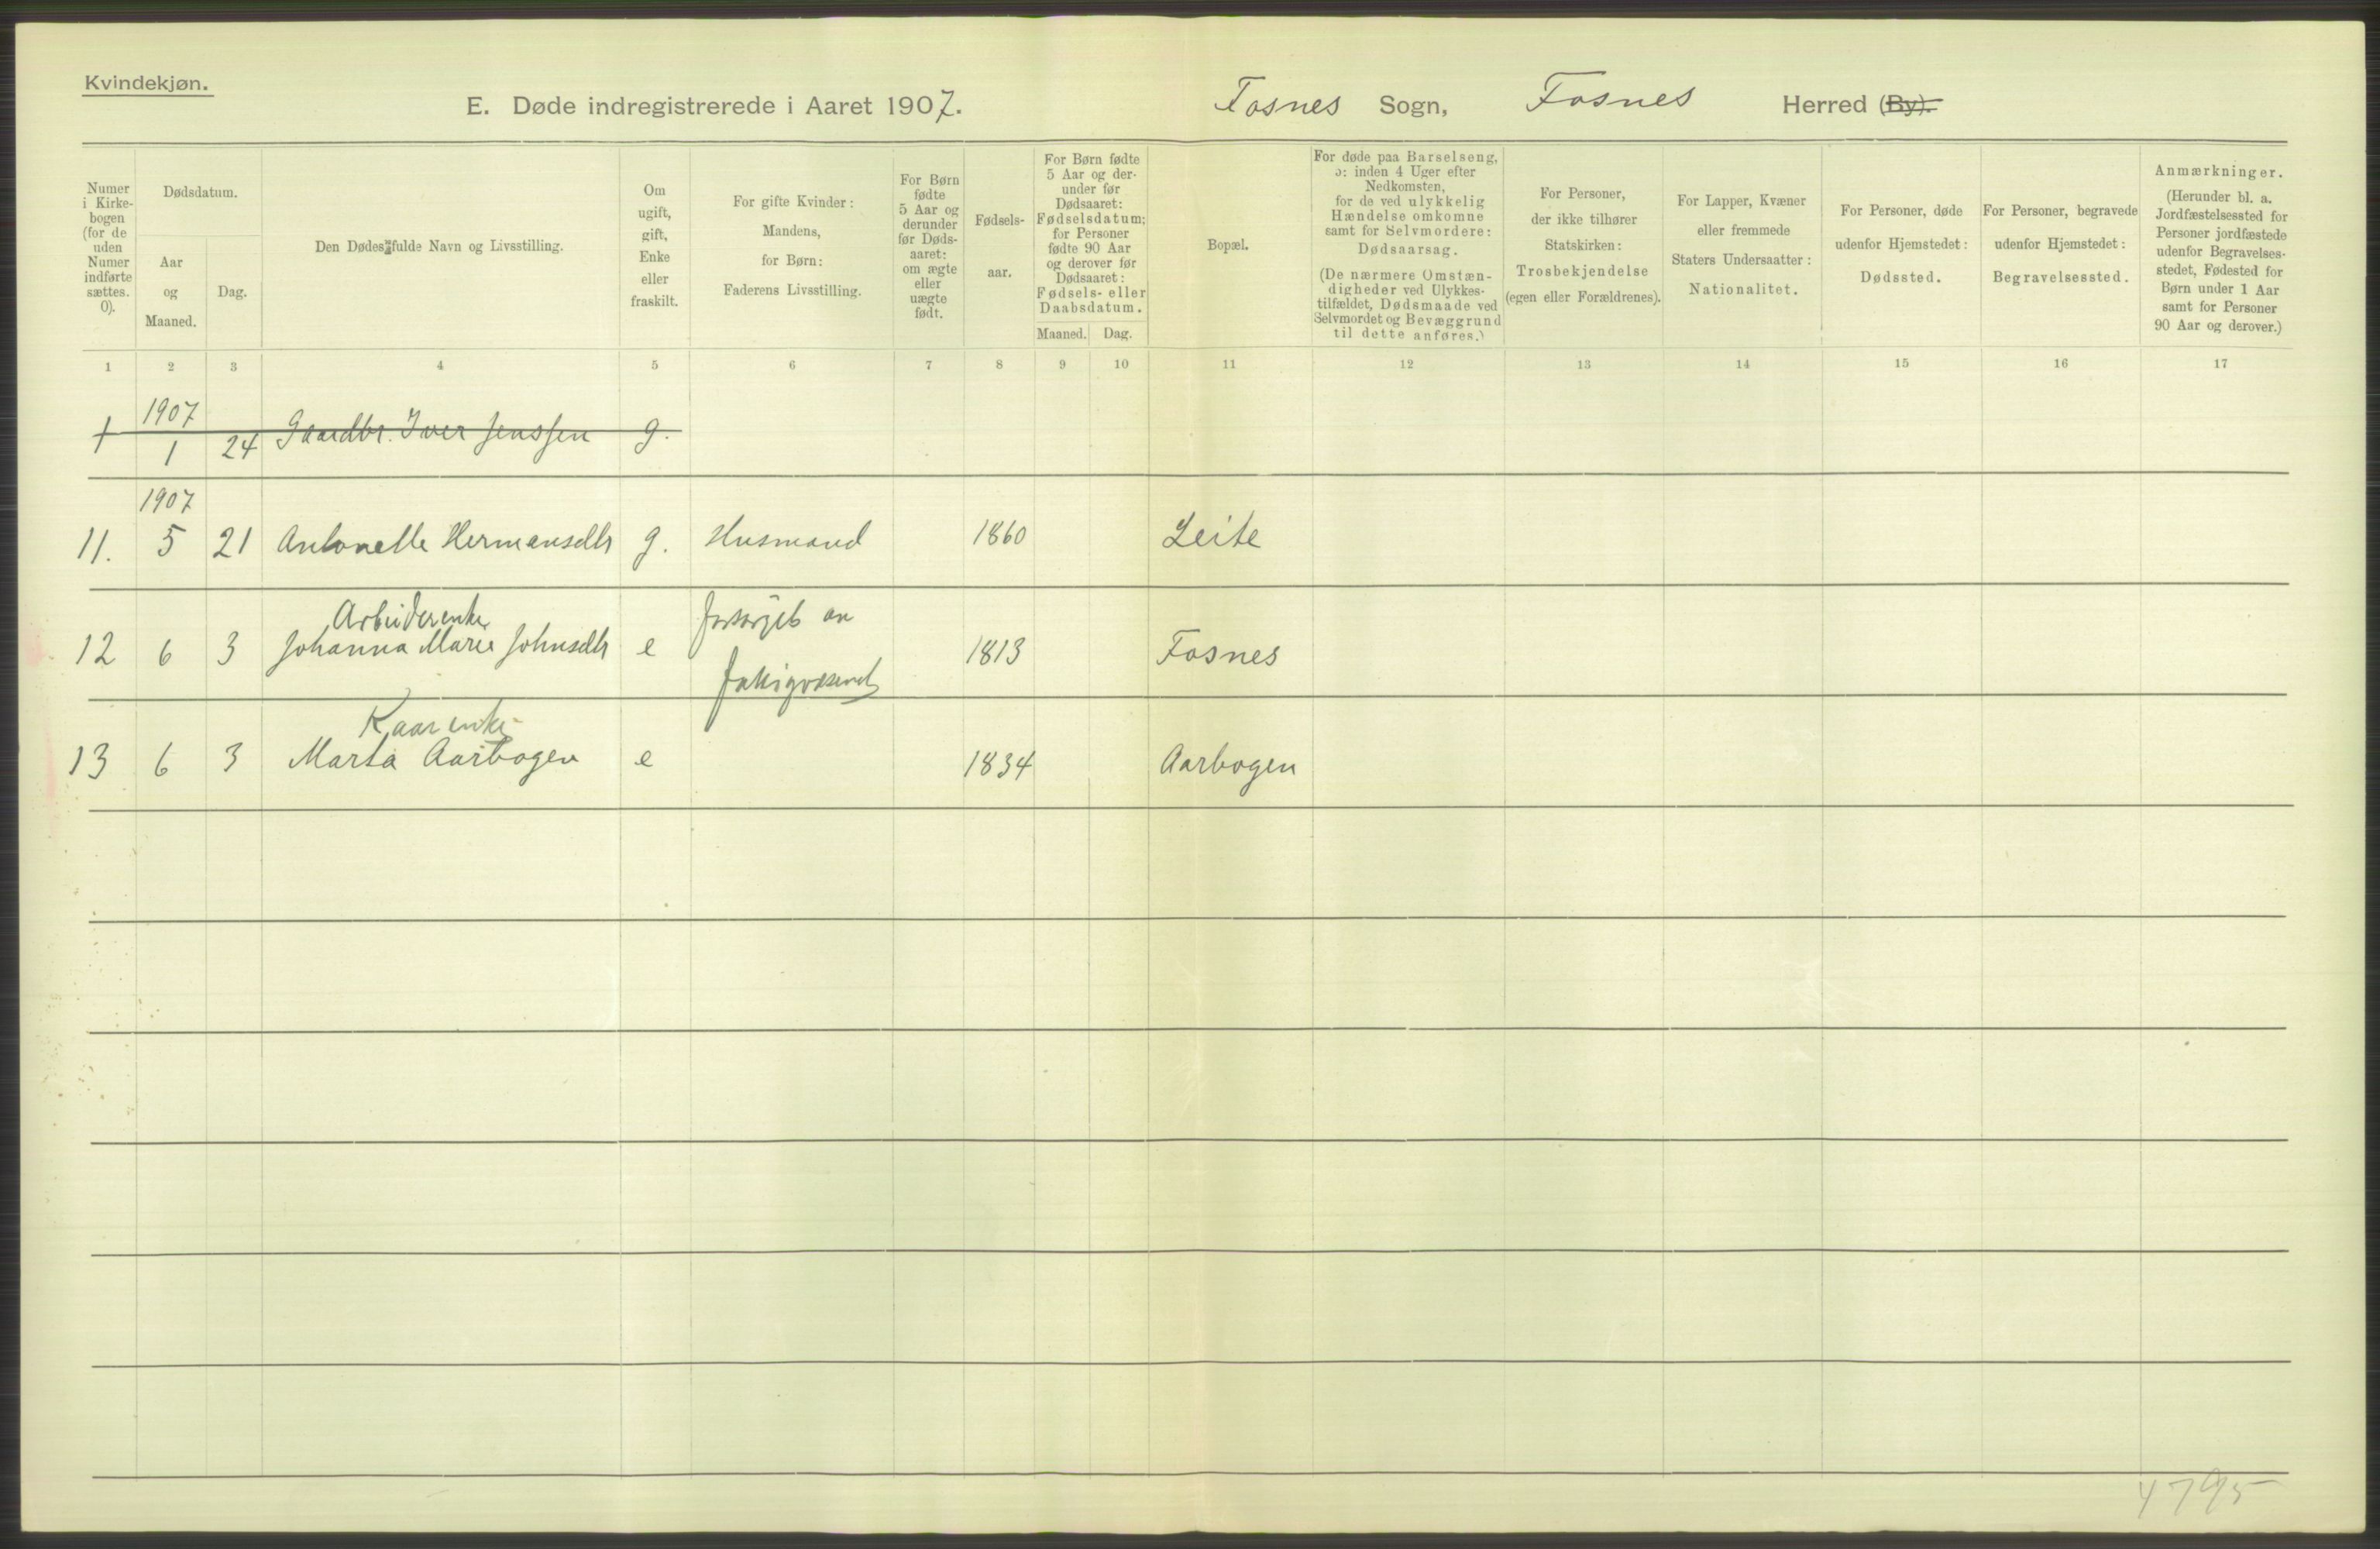 Kvindekjøn.
E. Døde indregistrerede i Aaret 1907. Fosnes Sogn, Fosnes Herred (By).
Numer
i Kirke-
bogen
(for de
uden
Numer
indførte
sættes.
0).
Dødsdatum.
Aar
og
Maaned.
Dag.
Den Dødes fulde Navn og Livsstilling.
Om
ugift,
gift,
Enke
eller
fraskilt.
For gifte Kvinder:
Mandens,
for Børn:
Faderens Livsstilling.
For Børn
fødte
5 Aar og
derunder
før Døds-
aaret:
om ægte
eller
uægte
født.
Fødsels-
aar.
For Børn fødte
5 Aar og der-
under før
Dødsaaret:
Fødselsdatum;
for Personer
fødte 90 Aar
og derover før
Dødsaaret:
Fødsels- eller
Daabsdatum.
Maaned. Dag.
Bopæl.
For døde paa Barselseng,
ɔ: inden 4 Uger efter
Nedkomsten,
for de ved ulykkelig
Hændelse omkomne
samt for Selvmordere:
Dødsaarsag.
(De nærmere Omstæn-
digheder ved Ulykkes-
tilfældet, Dødsmaade ved
Selvmordet og Bevæggrund
til dette anføres.)
For Personer,
der ikke tilhører
Statskirken:
Trosbekjendelse
(egen eller Forældrenes).
For Lapper, Kvæner
eller fremmede
Staters Undersaatter:
Nationalitet.
For Personer, døde
udenfor Hjemstedet:
Dødssted.
For Personer, begravede
udenfor Hjemstedet:
Begravelsessted.
Anmærkninger.
(Herunder bl. a.
Jordfæstelsessted for
Personer jordfæstede
udenfor Begravelses-
stedet, Fødested for
Børn under 1 Aar
samt for Personer
90 Aar og derover.)
1 2 3 4 5 6 7 8 9 10 11 12 13 14 15 16 17
1907
1 1 24 Gaardbr. Iver Jenssen g.
1907
11. 5 21 Antonette Hermansdtr g. Husmand 1860 Leite
Arbeiderenke forsørget av
12 6 3 Johanna Marie Johnsdtr e 1813 Fosnes
Fattigvæsenet
Kaarenke
13 6 3 Marta Aarbogen e 1834 Aarbogen
4795